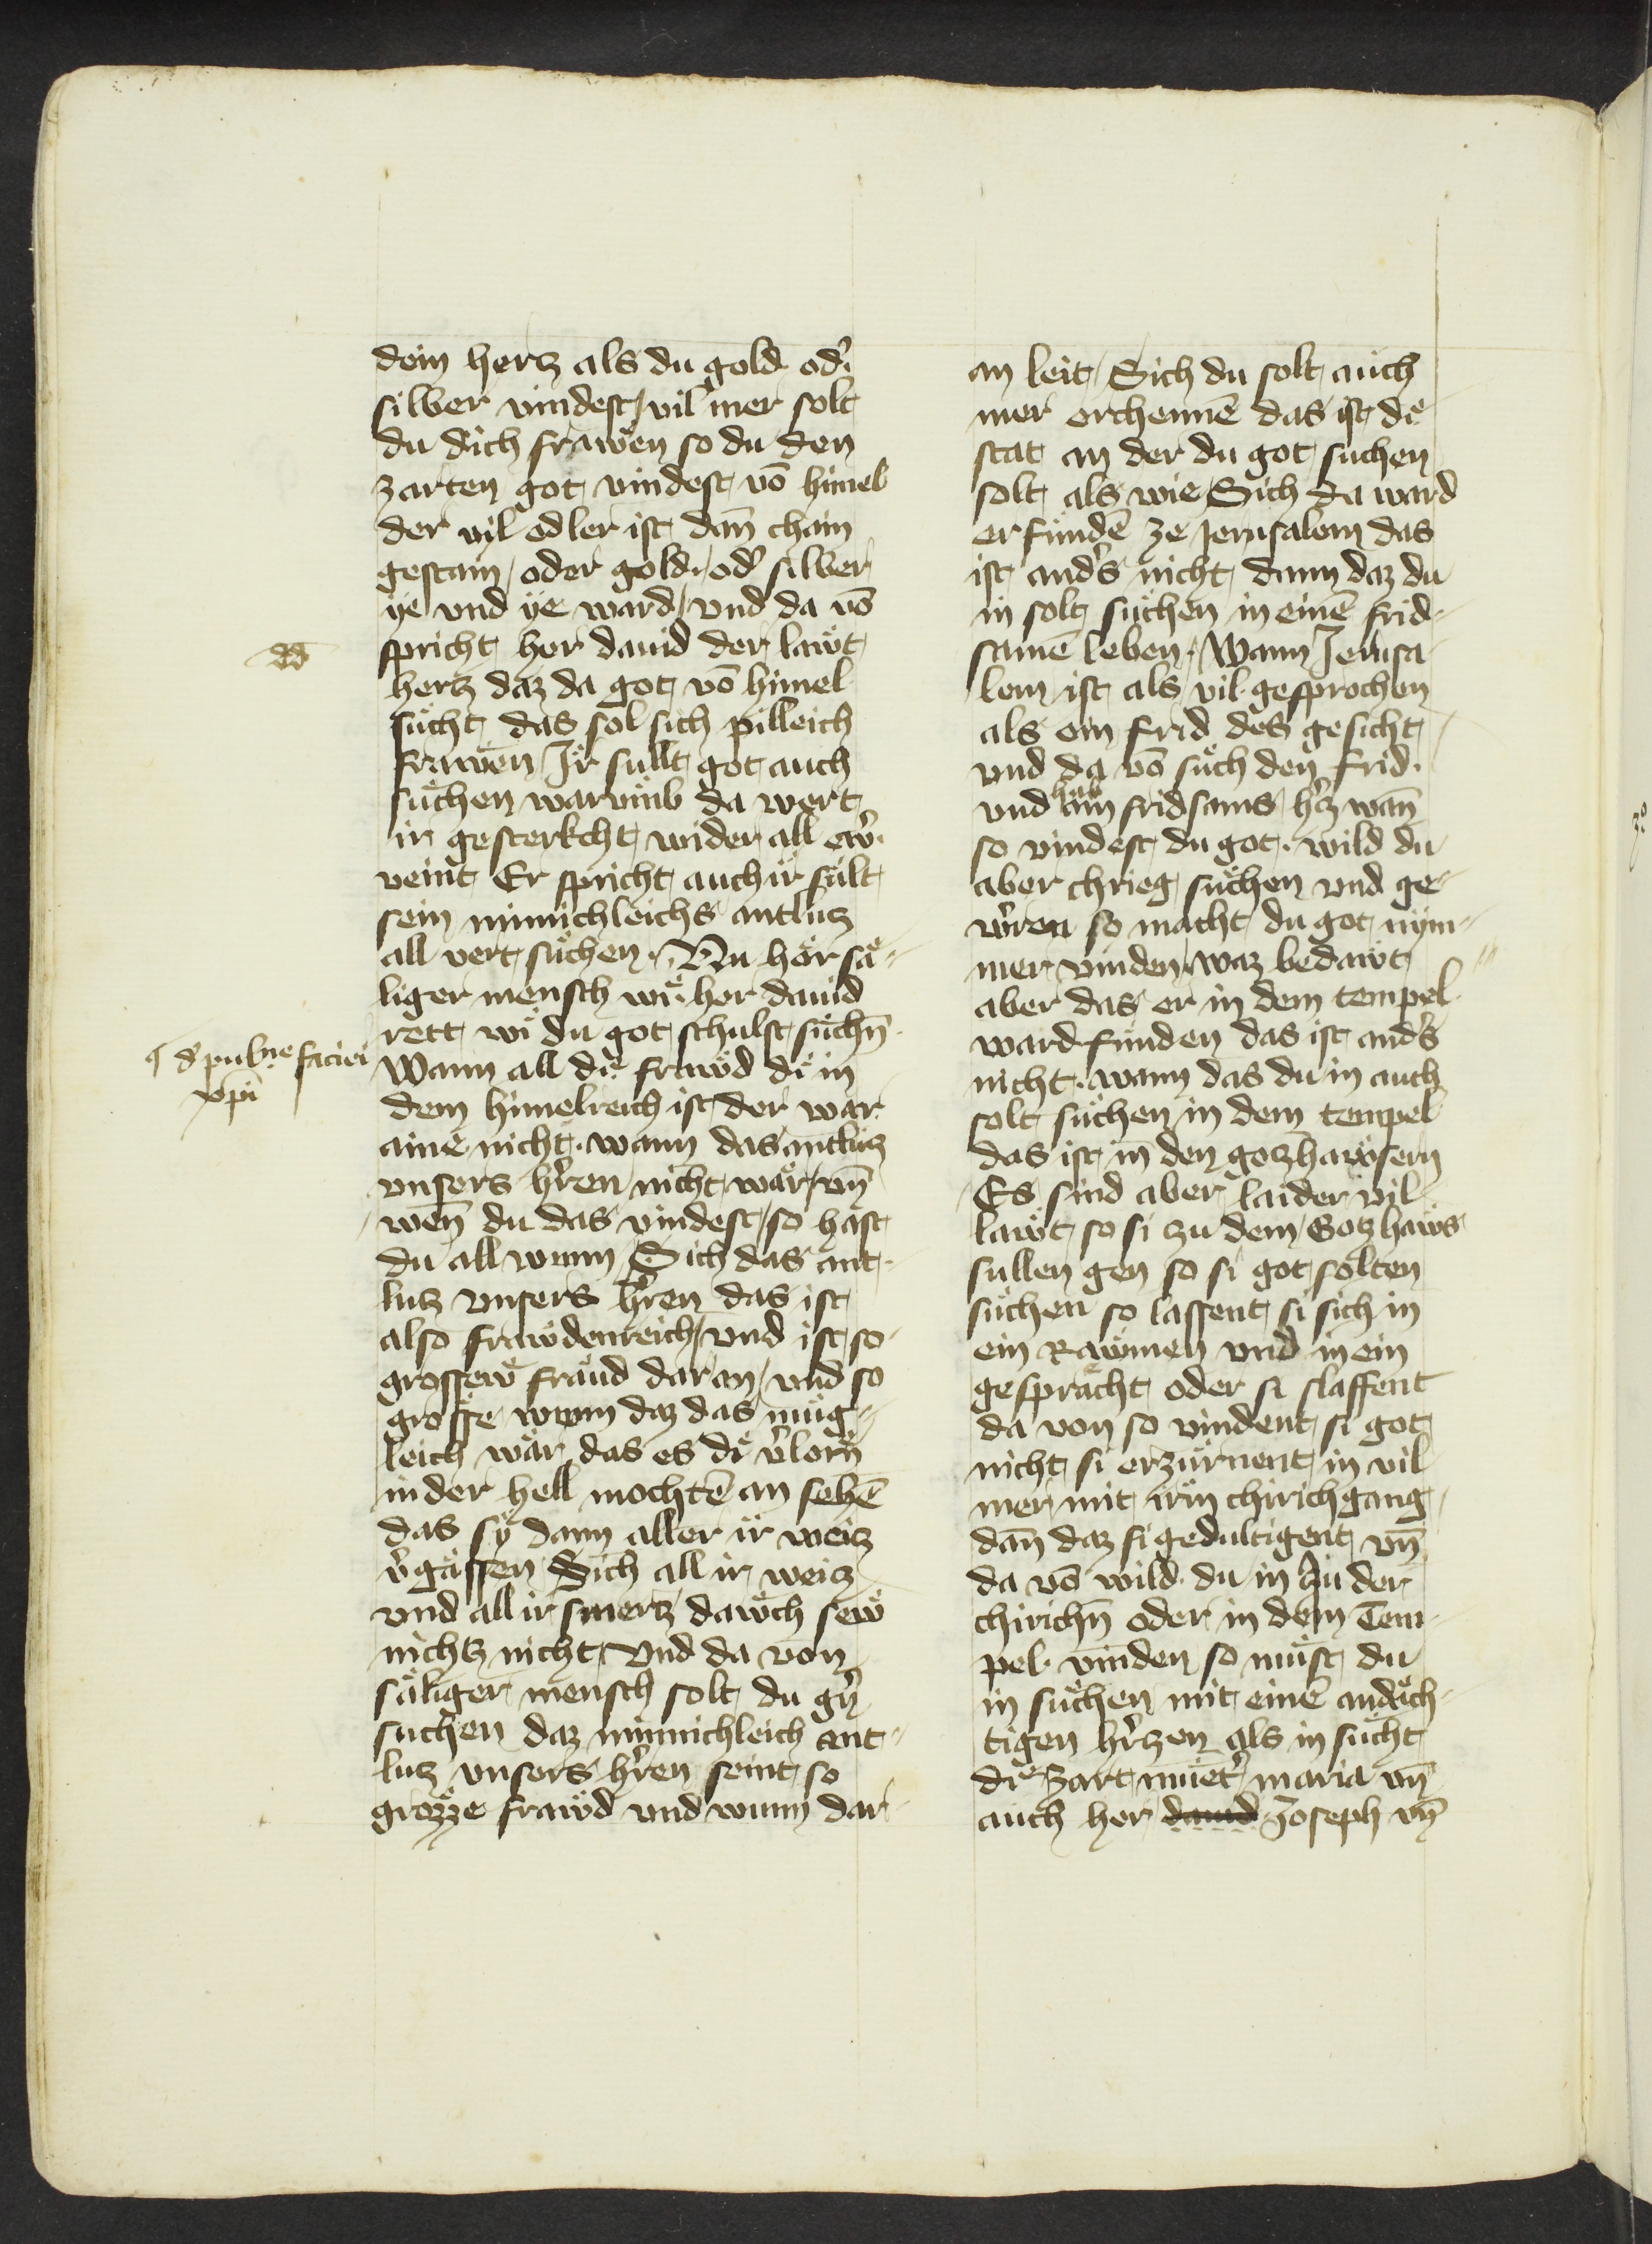 dein hertz als du gold od̾
silber vindest / vil mer solt
du dich frawen so du den
zarten got vindest võ himel
der vil edler ist dañ chain
gestain / oder gold / od̾ silber
ÿe vnd ÿe ward / vnd da võ
spricht her dauid der lawt
dd
hertz daz da got võ himel
sücht das sol sich pilleich
frawen Jr sullt got auch
süchen warumb da wert
ir gesterkcht wider all ew̾
veint Er spricht auch ir sült
sein minnichleichs antlütz
all vert süchen · Nu hör sä-
liger mensch wie her dauid
rett wi du got schulst süchñ
¶ d̾ pulc̾ne faciei
xp̄i
Wann all di frawd di in
dem himelreich ist der wär
aine nicht · wann das antlütz
vnsers h̾ren nicht wär / vñ
wen̄ du das vindest / so hast
du all wunn Sich das ant-
lutz vnsers h̾ren das ist
also frawdenreich / vnd ist so
grossew fräud dar an / vnd so
grosse wunn daz das müg-
leich wär das es di v̾lorñ
in der hell mochtē an sehē
das sÿ dann aller ir weitz
v̾gässen Sich all ir weitz
vnd all ir smertz dawch sew
nichtz nicht Vnd da von
säliger mensch solt du g̾ñ
suchen daz minnichleich ant-
lutz vnsers h̾ren seint so
grozze frawd vnd wunn dar
an leit / Sich du solt auch
mer erchennē das ist di
stat an der du got suchen
solt als wie Sich da ward
erfundē ze Jerusalem das
ist and̾s nicht dann daz du
in solt suchen in einē frid-
samē leben · Wann Jerusa
lem ist als vil gesprochen
als ein frid des gesicht
vnd da võ such den frid ·
vnd hab ain fridsams h̾tz wañ
so vindest du got · wild du
aber chrieg suchen vnd ge-
w̾ren so macht du got nÿm-
mer vinden / waz bedawt
aber das er in dem tempel
ward funden das ist and̾s
nicht · wann das du in auch
solt suchen in dem tempel
das ist in den gotzhawsern
Es sind aber laider vil
lawt so si zu dem Gotzhaws
sullen gen so si got solten
suchen so lassent si sich in
ein Rawnen vnd in ein
gespracht oder si slaffent
da von so vindent si got
nicht si erzürnent in vil
mer mit irm chirichgang
dañ daz si gedultigent vñ
da võ wild du in in der
chirichñ oder in dem Tem-
pel vinden so müst du
in suchen mit einē andäch-
tigen h̾tzen als in sücht
di zart muet̾ maria vñ
auch her dauid Joseph vñ